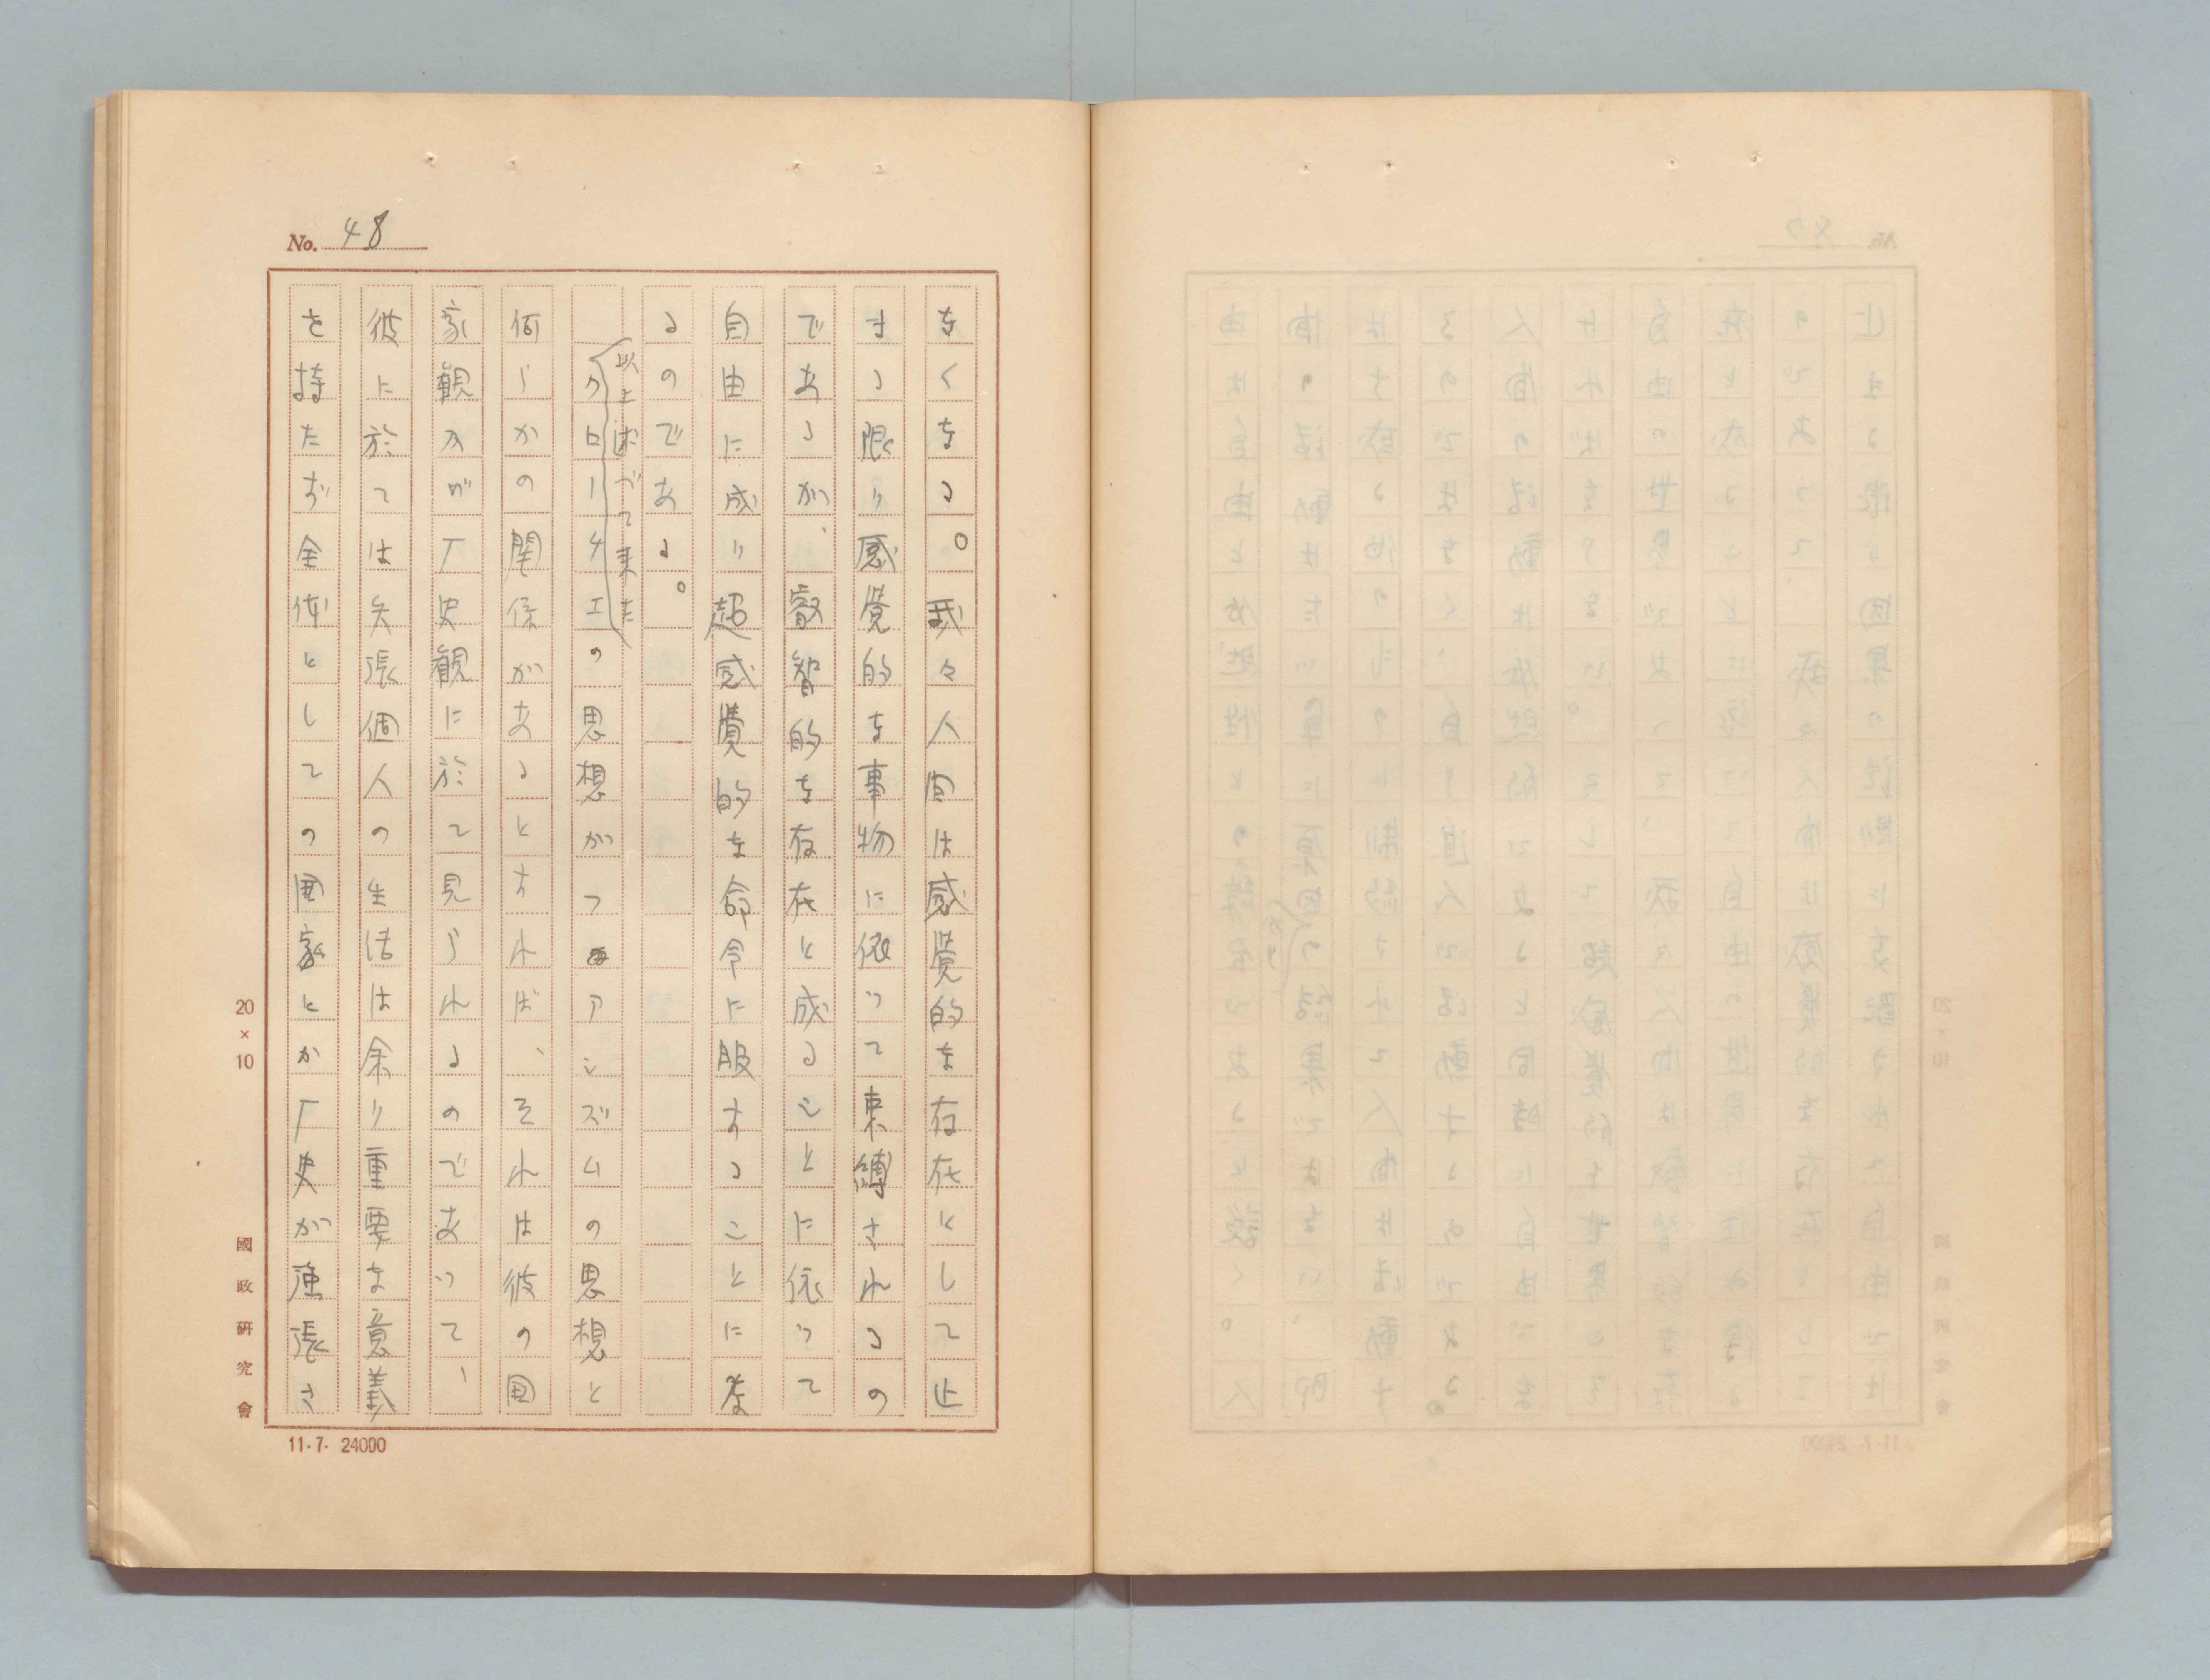 No. 48
なくなる。我々人间は感覚的な存在として止
まる限り感覚的な事物に依つて束縛されるの
であるが、叡智的な存在と成ることに依つて
自由に成り超感覺的な命令に服することにな
るのである。
以上述べて来た
クローチエの思想がファシズムの思想と
何らかの関係があるとすれば、それは彼の囯
家観乃び厂史観に於て見られるのであつて、
彼に於ては矢張個人の生活は余り重要な意義
を持たず全体としての囯家とか厂史が強張さ
20×10
國政研究會
11.7. 24000